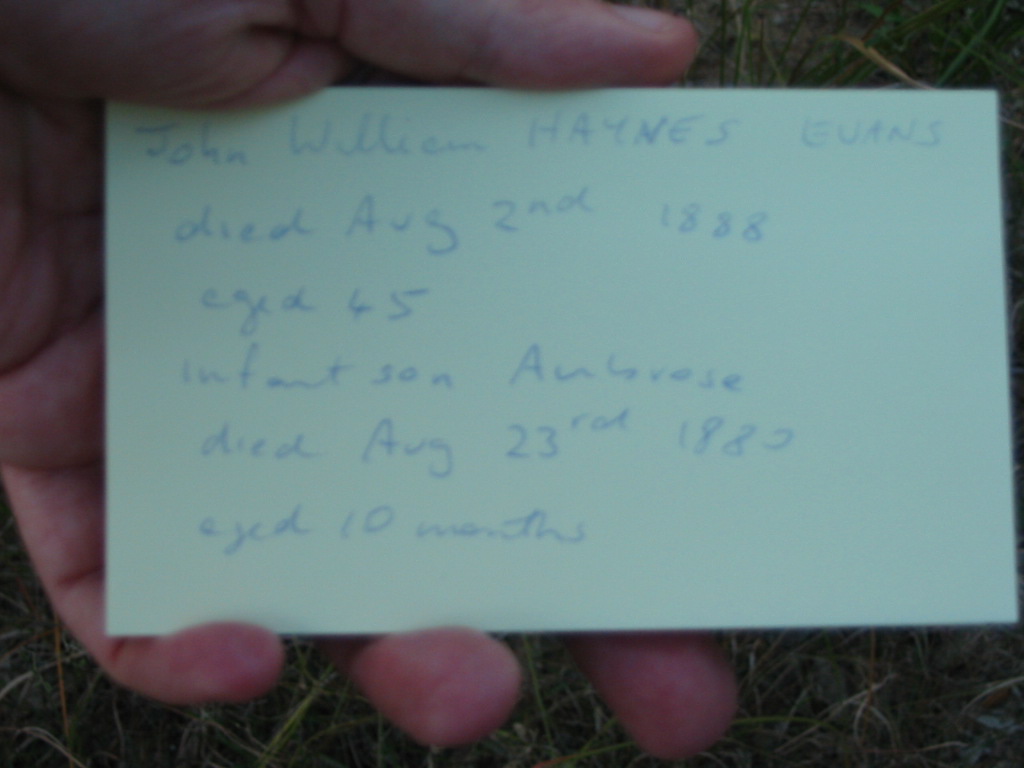 John William HAYNES EVANS
died Aug 2nd 1888
aged 45
infant son Ambrose
died Aug 23rd 1880
aged 10 months